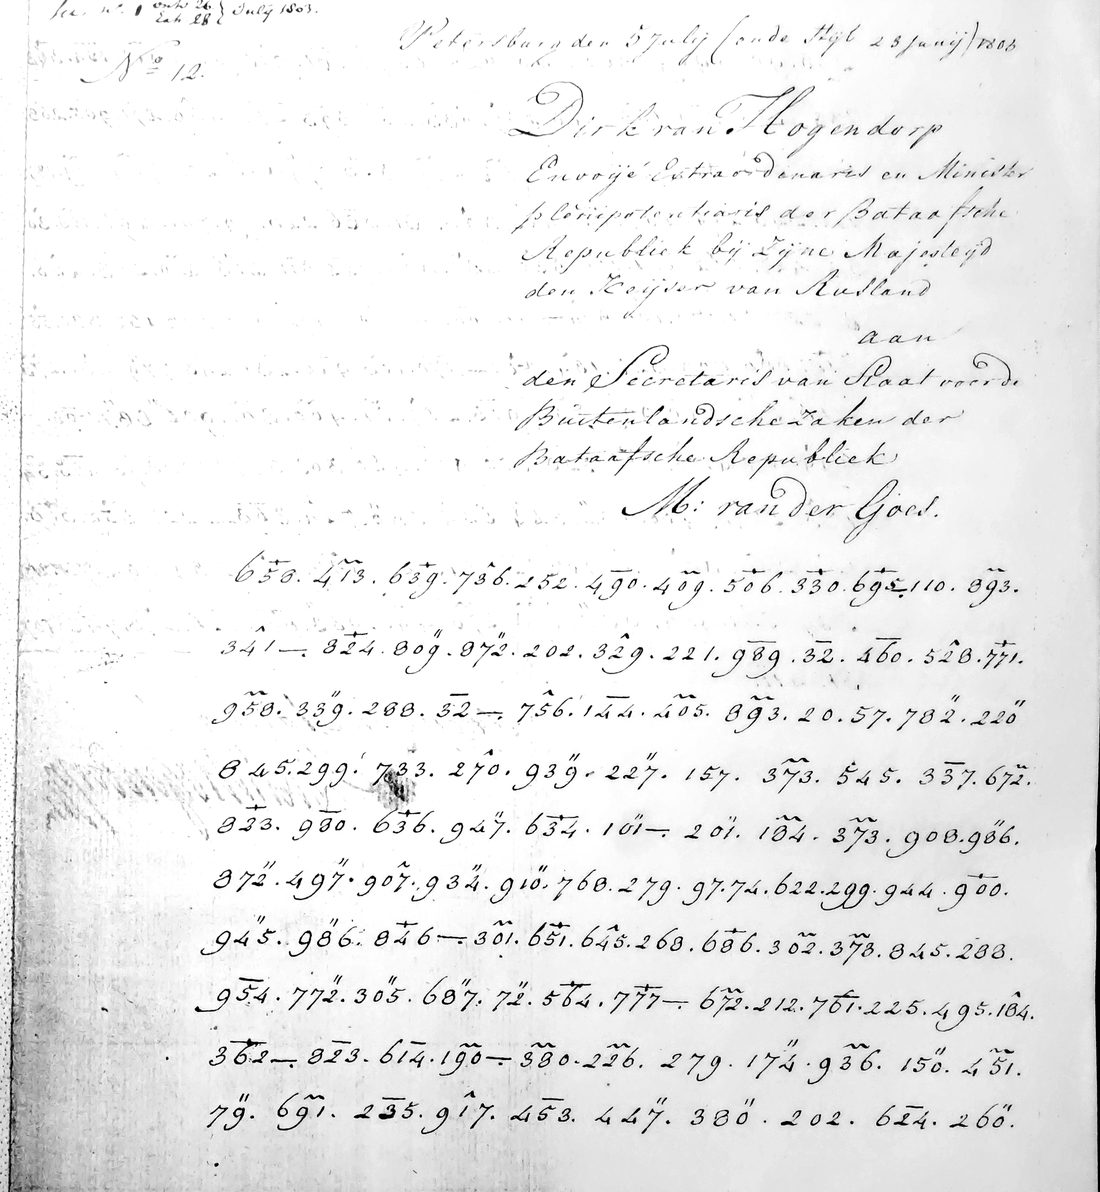 Sec. N.º 1 ontv 26 } July 1803.
Exh 28
Petersburg den 5 July (oude Styl 23 Junij) 1803
Nº 12.
Dirk van Hogendorp
Envoijé Extraordinaris en Minister
plenipotentiaris der Bataafsche
Republiek bij Zijne Majesteyd
den Keyser van Rusland
aan
den Secretaris van Staat voor de
Buitenlandsche Zaken der
Bataafsche Republiek
M: van der Goes.
658. 413. 639. 736. 252. 490. 409. 506. 330. 695. 110. 893.
341 —. 824. 809. 872. 202. 329. 221. 989. 32. 460. 528. 771.
958. 339. 288. 32 —. 756. 144. 405. 893. 20. 57. 782. 220
845. 299. 733. 270. 939. 227. 157. 373. 545. 337. 672.
823. 980. 636. 947. 634. 101 —. 201. 184. 373. 908. 986.
872. 497. 907. 934. 910. 768. 279. 97. 74. 622. 299. 944. 900.
945. 986. 846 —. 301. 651. 645. 268. 686. 302. 378. 845. 288.
954. 772. 305. 687. 72. 564. 777 —. 672. 212. 761. 225. 495. 184.
362 —. 823. 614. 190 —. 380. 226. 279. 174. 936. 150. 451.
79. 691. 235. 917. 453. 447. 380. 202. 624. 260.